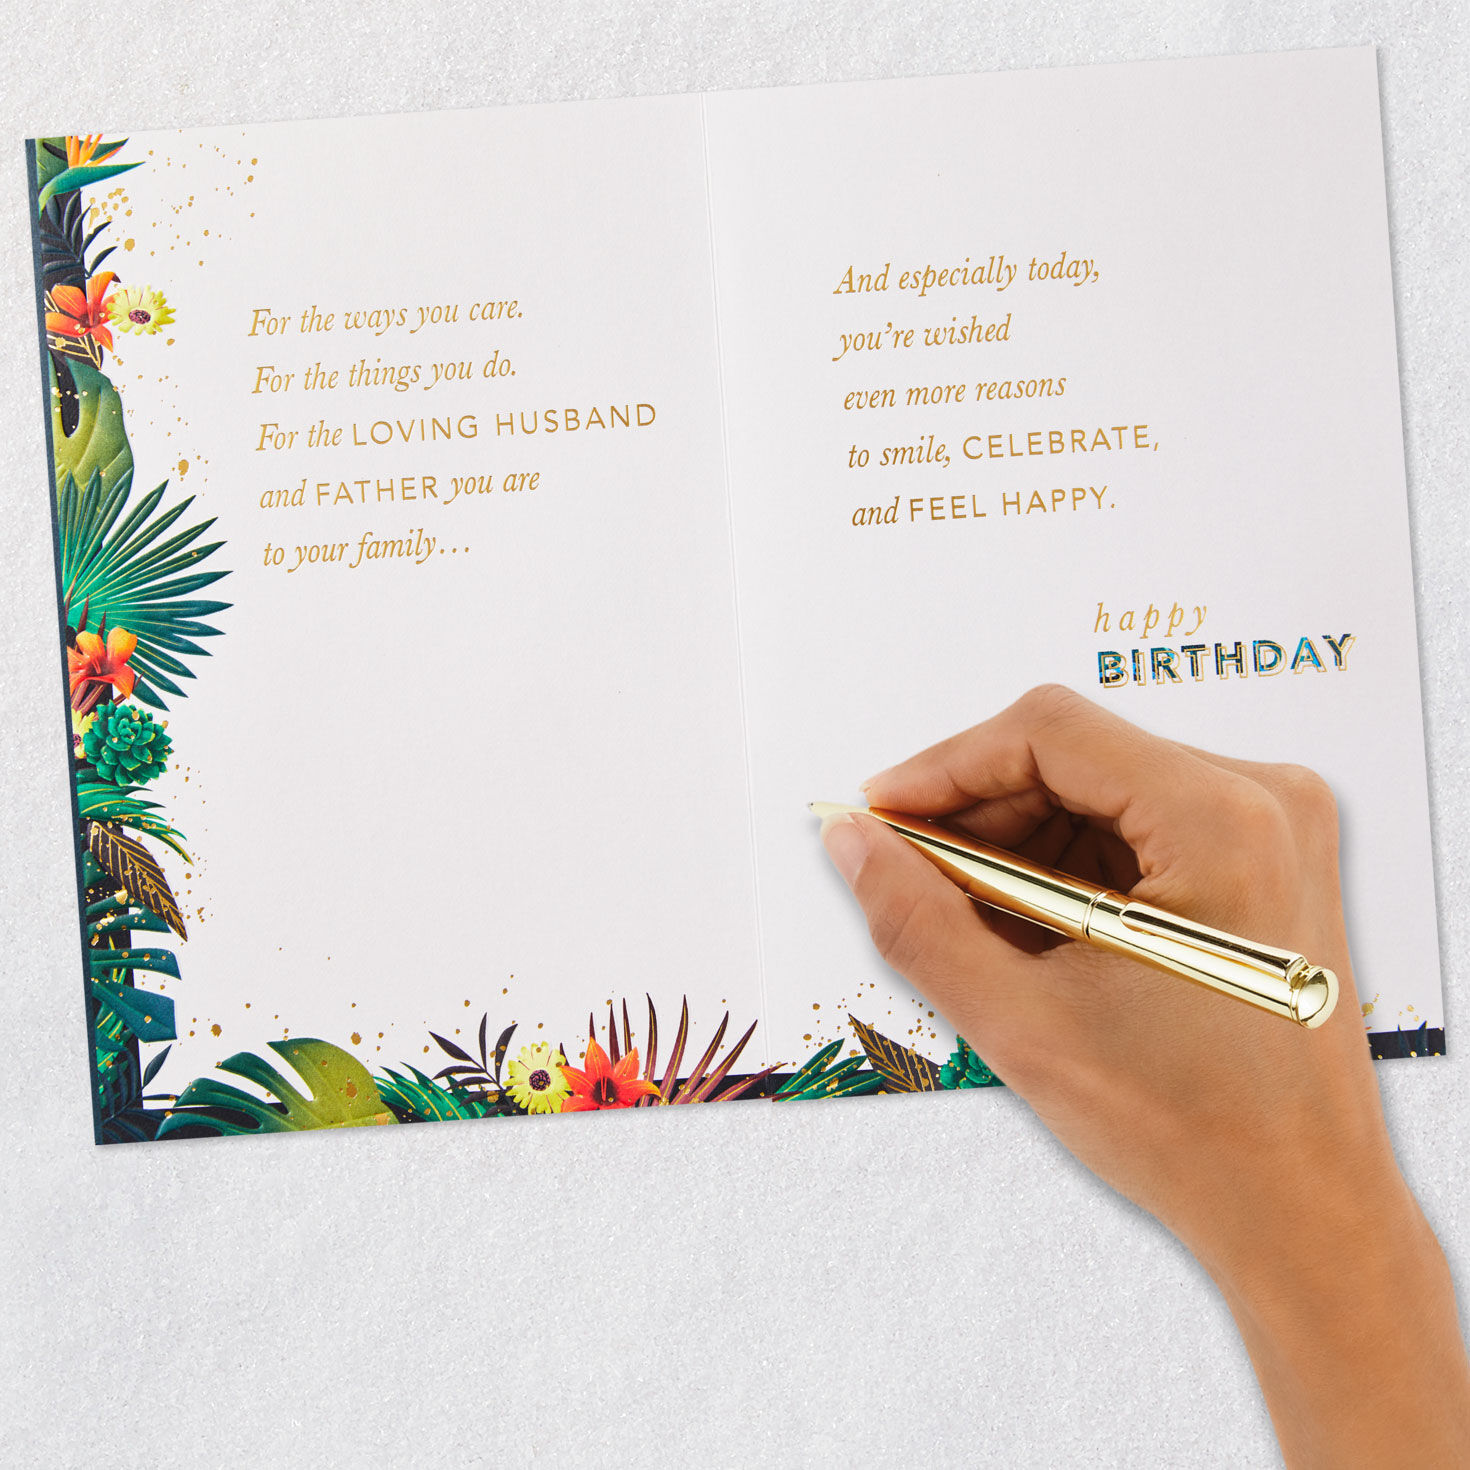 For the ways you care.
For the things you do.
For the LOVING HUSBAND
and FATHER you are
to your family...
And especially today,
you're wished
even more reasons
to smile, CELEBRATE,
and FEEL HAPPY.
happy
BIRTHDAY